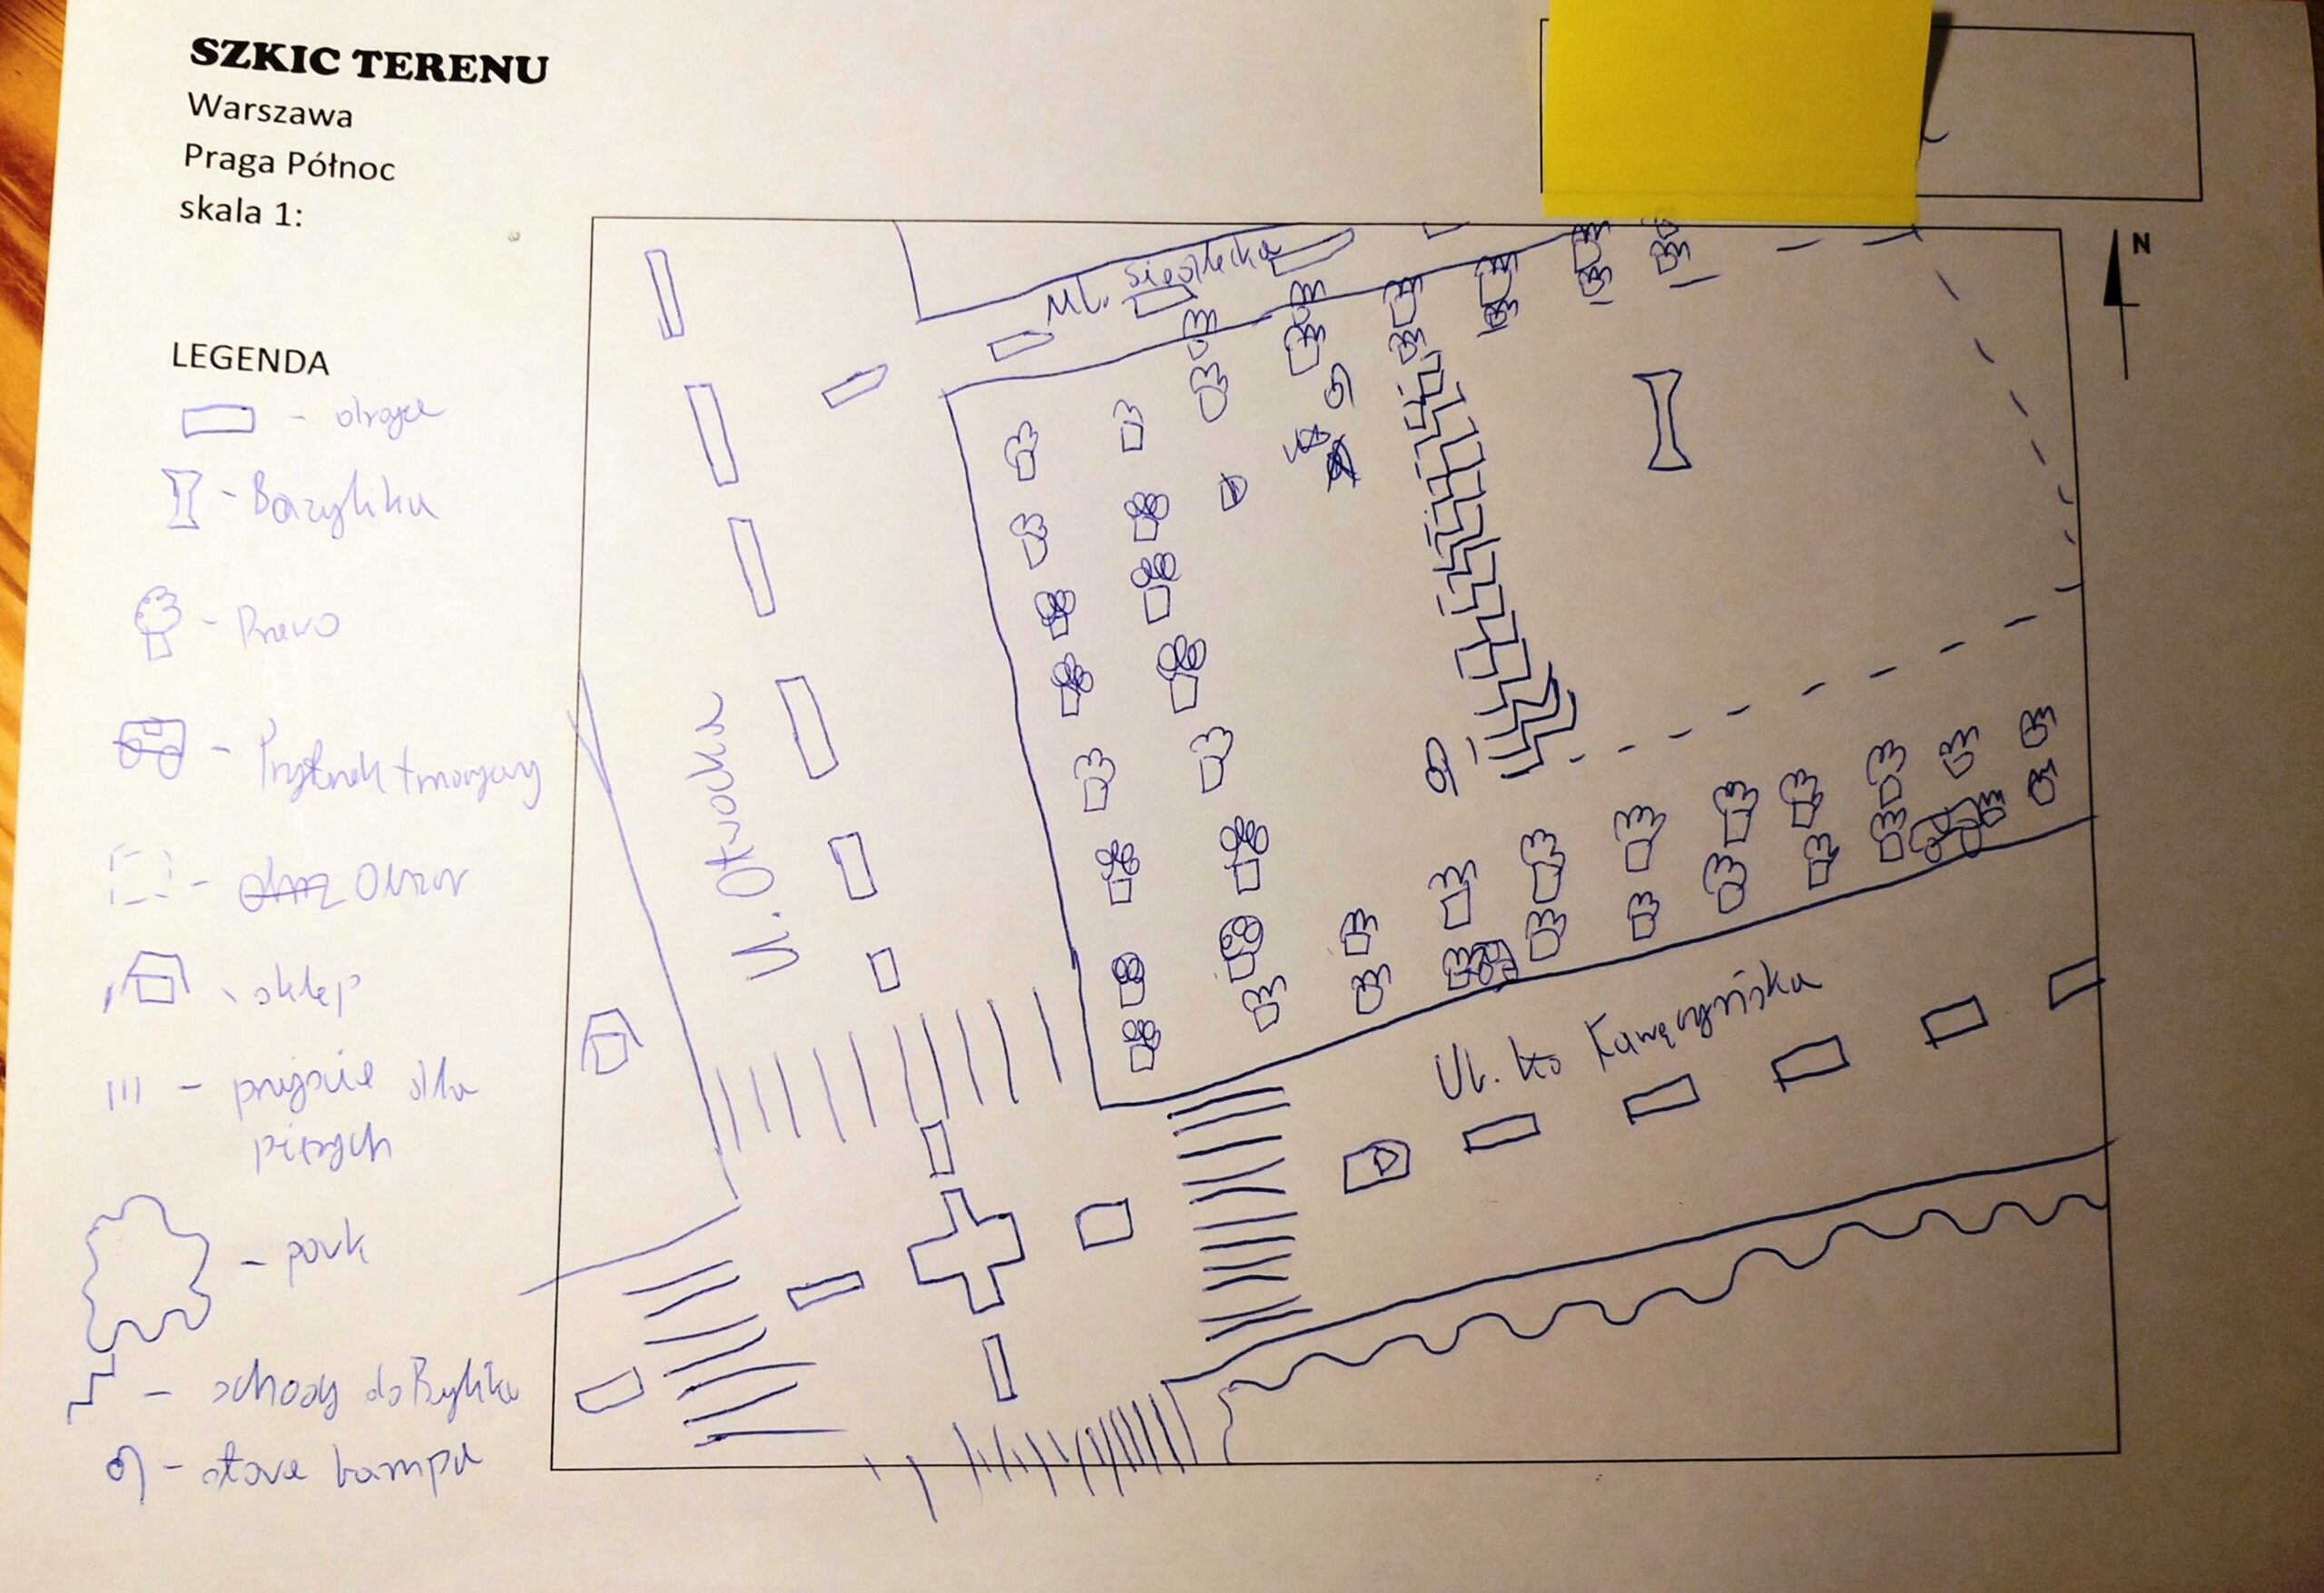 SZKIC TERENU
Warszawa
Praga Północ
skala 1:
N
LEGENDA
- Bazylika
- Drzewo
- Przystanek tramwajowy
- Obszar
- sklep
- przejście dla
pieszych
- park
- schody do Bazyliki
- stare lampa
ul. Siedlecka
Ul. Otwocka
Ul. Kawęczyńska